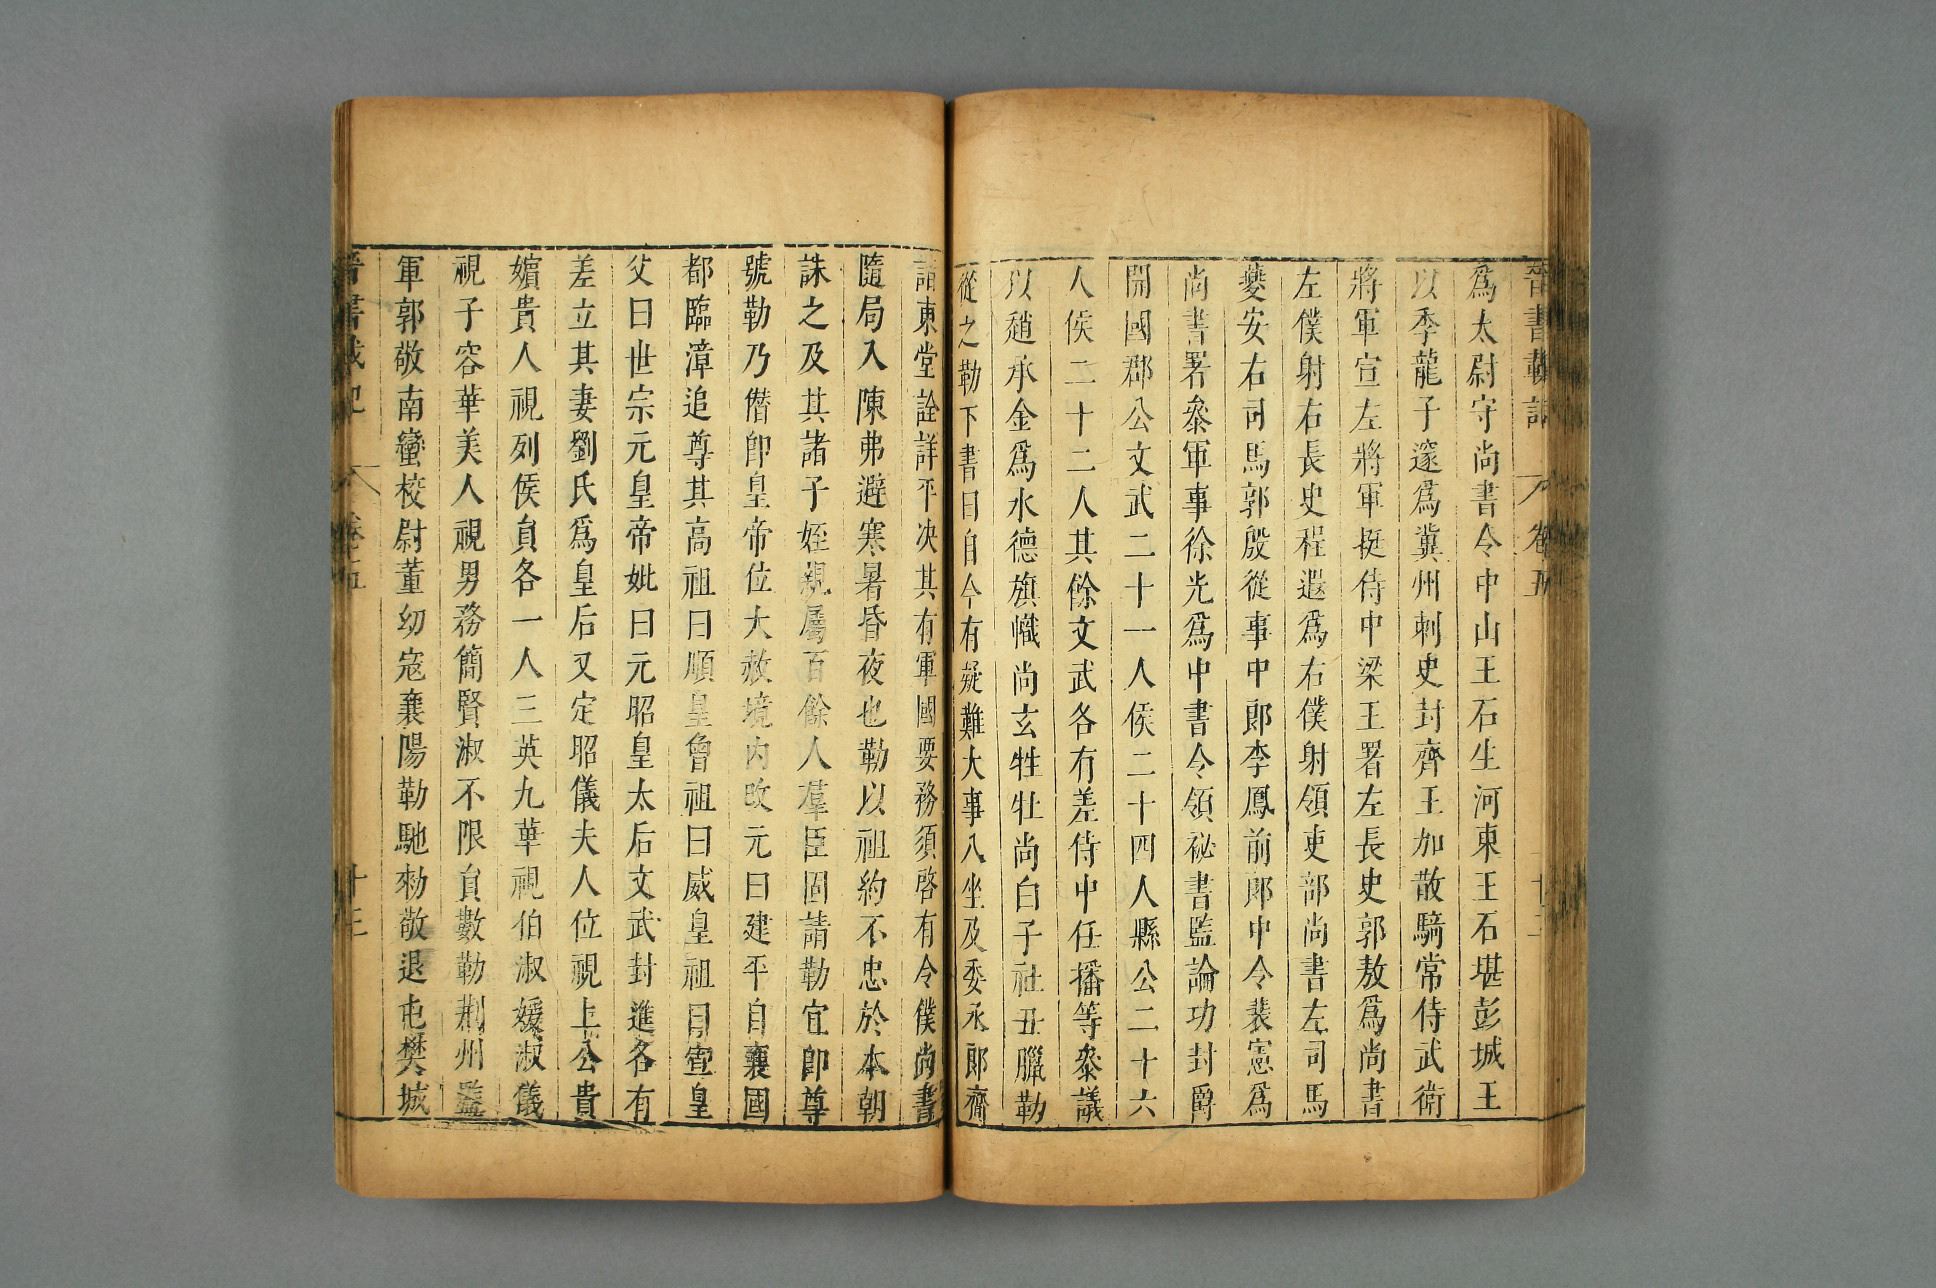 晉書載記 卷五 十三
爲太尉守尚書令中山王石生河東王石堪彭城王
以季龍子邃爲冀州刺史封齊王加散騎常侍武衛
將軍宣左將軍挺侍中梁王署左長史郭敖爲尚書
左僕射右長史程遐爲右僕射領吏部尚書左司馬
夔安右司馬郭殷從事中郎李鳳前郎中令裴憲爲
尚書署叅軍事徐光爲中書令領祕書監論功封爵
開國郡公文武二十一人侯二十四人縣公二十六
人侯二十二人其餘文武各有差侍中任播等叅議
以趙承金爲水德旗幟尚玄牲牡尚白子社丑臘勒
從之勒下書曰自今有疑難大事八坐及委丞郎齎
詣東堂詮詳平决其有軍國要務須啓有令僕尚書
隨局入陳弗避寒暑昏夜也勒以祖約不忠於本朝
誅之及其諸子姪親屬百餘人羣臣固請勒宜卽尊
號勒乃僭卽皇帝位大赦境内改元曰建平自襄國
都臨漳追尊其高祖曰順皇曾祖曰威皇祖曰宣皇
父曰世宗元皇帝妣曰元昭皇太后文武封進各有
差立其妻劉氏爲皇后又定昭儀夫人位視上公貴
嬪貴人視列侯員各一人三英九華視伯淑媛淑儀
視子容華美人視男務簡賢淑不限員數勒荆州監
軍郭敬南蠻校尉董幼寇襄陽勒馳勑敬退屯樊城
晉書載記 卷五 十三